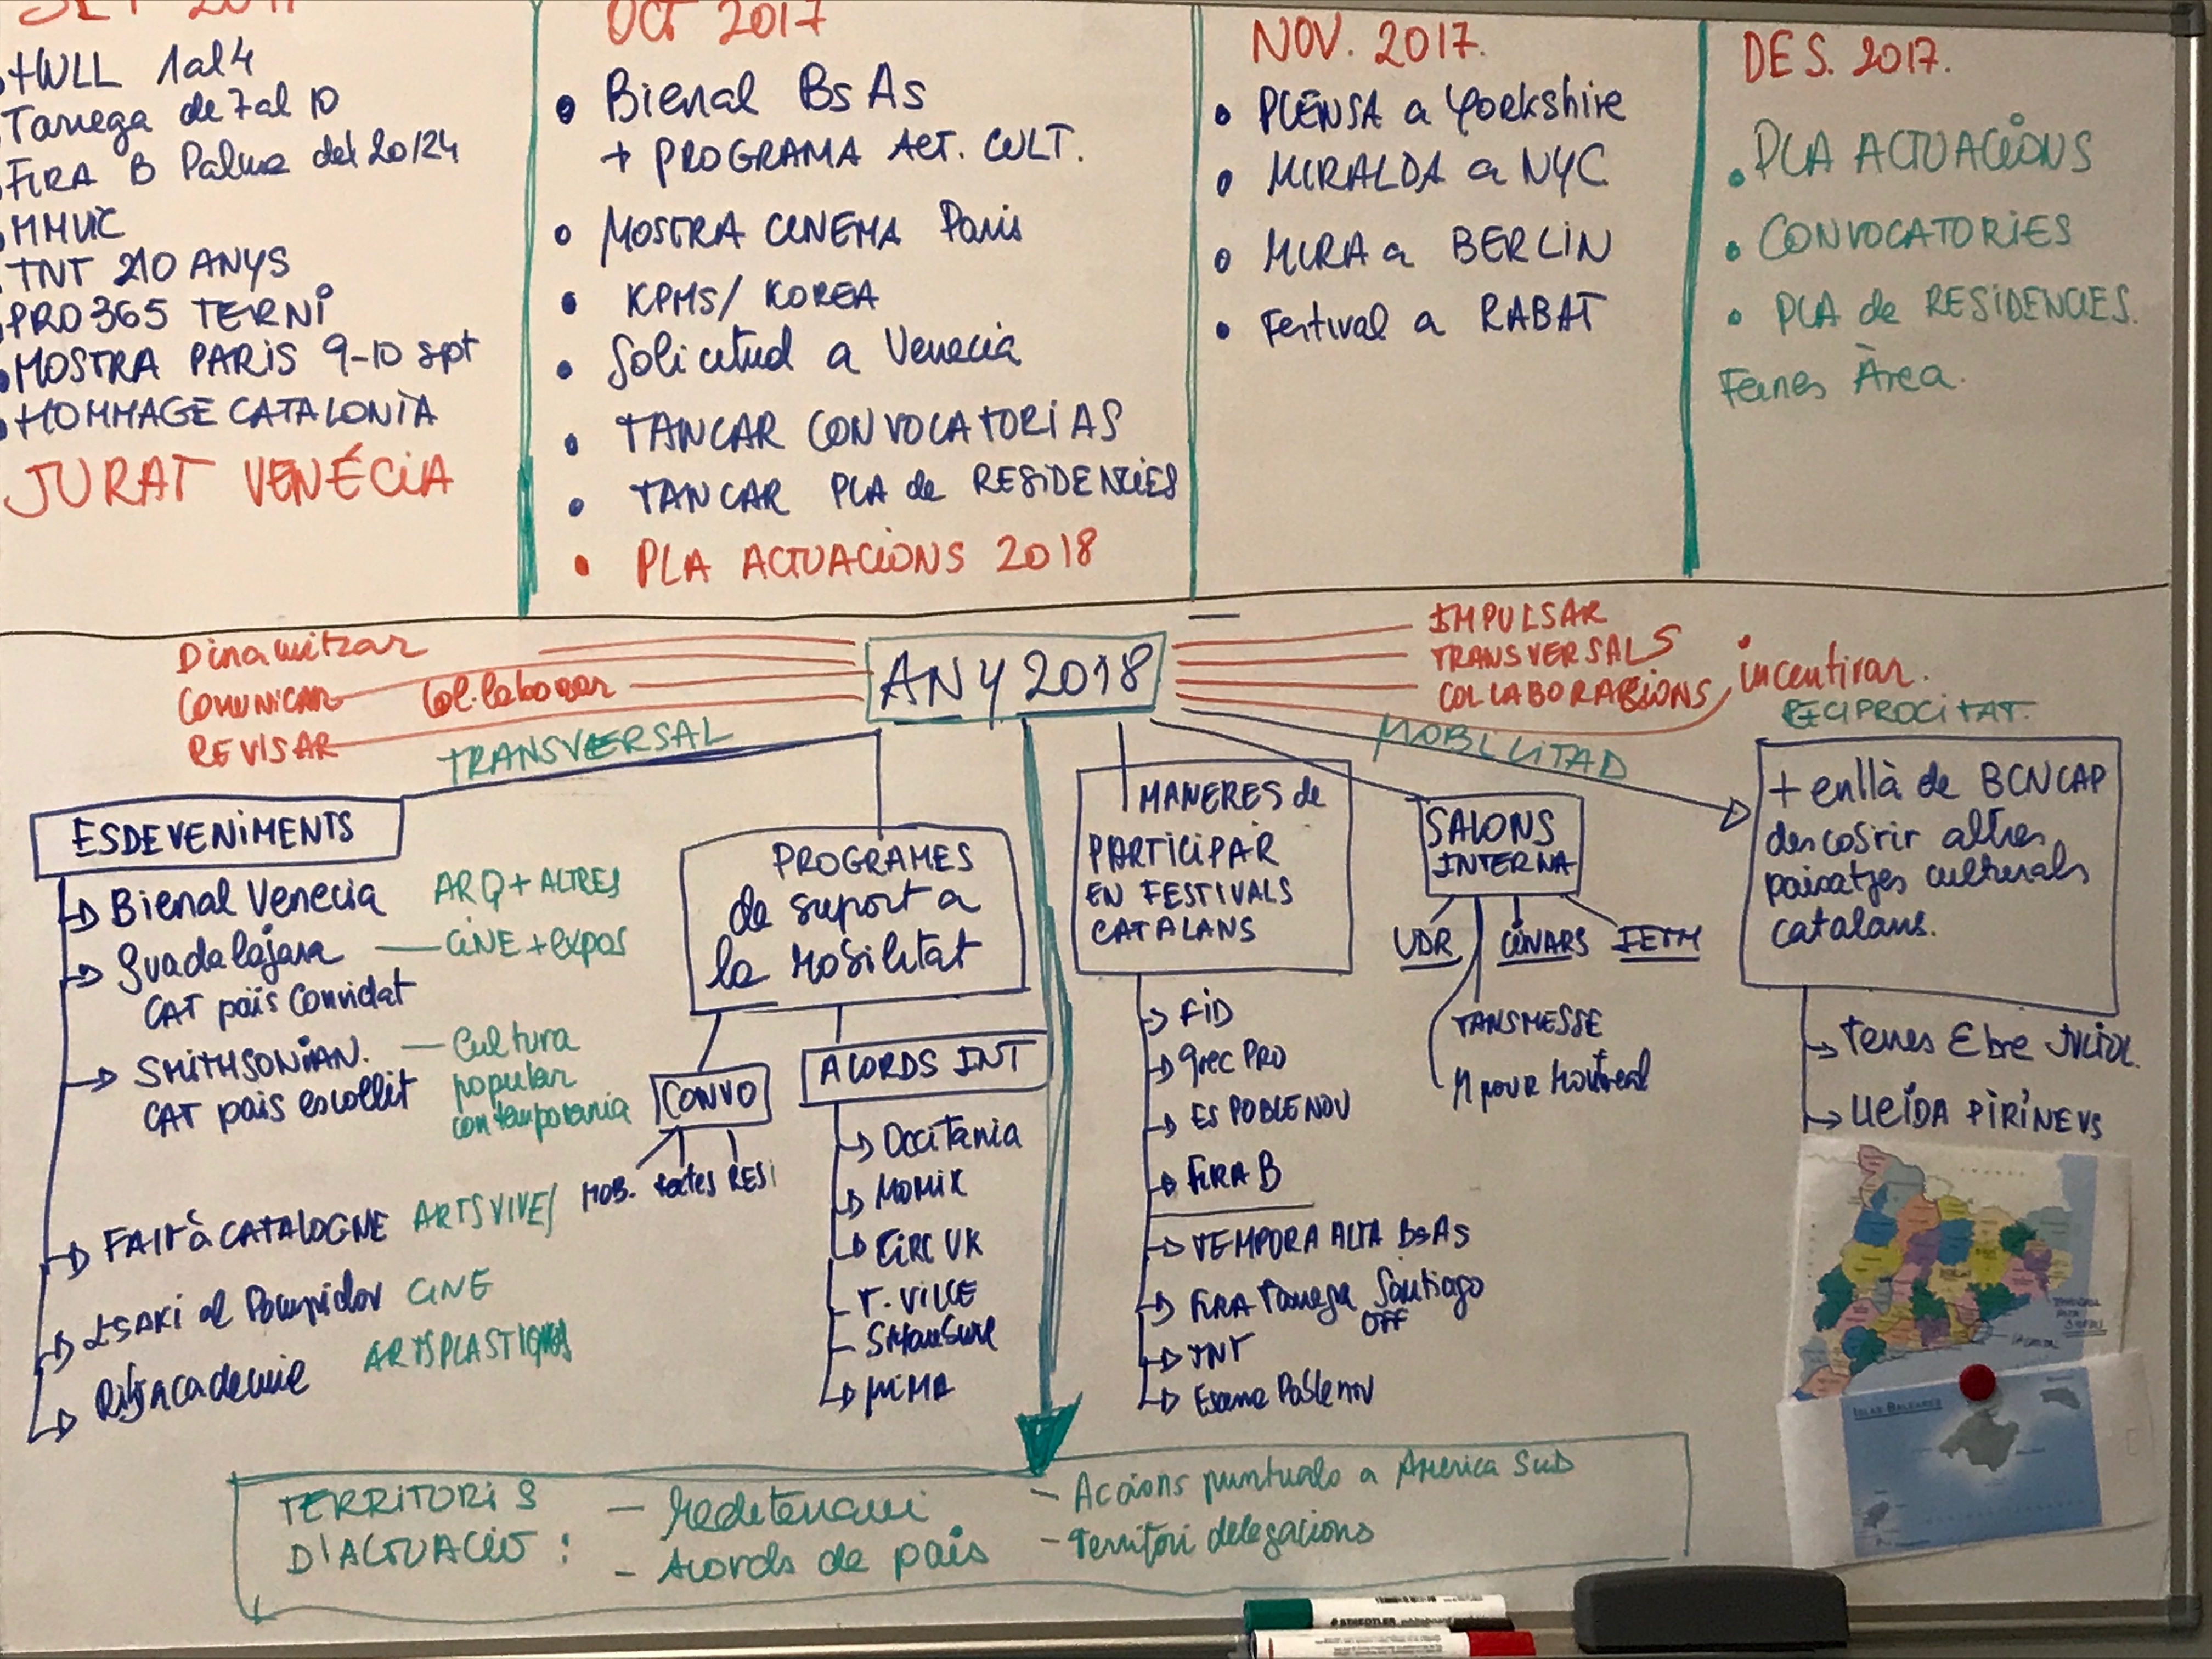 SET 2017
HWLL 1al4
Tarrega de 7al 10
FiRA B Palma del 20/24
MMVIC
TNT 210 ANYS
PRO365 TERNi
MOSTRA PARiS 9-10 spt
HOMMAGE CATALONIA
JURAT VENÉCiA
OCT 2017
Bienal BsAs
+ PROGRAMA ACT. CULT.
MOSTRA CiNEMA Paris
KPMS/ KOREA
Solicitud a Venecia
TANCAR CONVOCATORIAS
TANCAR PLA de RESiDENCiES
PLA ACTUACiONS 2018
NOV. 2017.
PLENSA a Yorkshire
MIRALDA a NYC
MIRA a BERLIN
Festival a RABAT
DES. 2017.
PLA ACTUACiONS
CONVOCATORiES
PLA de RESiDENCiES.
Feines Àrea.
Dinamitzar
COMUNICAR Col·laborar
REVISAR
TRANSVERSAL
ANY 2018
IMPULSAR
TRANSVERSALS
COL·LABORACiONS
incentivar.
RECIPROCITAT.
MOBILITAD
ESDEVENiMENTS
Bienal Venecia ARQ + ALTRES
Guadalajara — CiNE + expos
CAT païs Convidat
SMITHSONiAN. — Cultura
CAT pais escollit popular
contemporania
FAIT à CATALOGNE ARTS VIVE/
ISAKI al Pompidou CiNE
Rijksacademie ARTSPLASTIQUES
PROGRAMES
de suport a
la Mobilitat
CONVO
MOB. textes RESi
ACORDS INT
Occitania
MOMIX
CIRC UK
T. ViLLE
SMouSure
MiMA
MANERES de
PARTICIPAR
EN FESTIVALS
CATALANS
FiD
grec PRO
ES POBLENOU
FiRA B
TEMPORA ALTA BsAs
FiRA Tarrega Santiago
OFF
TNT
Escena Poblenou
SALONS
INTERNA
UDR CiNARS IETM
TANSMESSE
M pour Montreal
+ enllà de BCNCAP
descobrir altres
paisatjes culturals
catalans.
Terres Ebre
LLEiDA PiRiNEUS
ISLAS BALEARES
TERRITORiS
D'ACTUACiÓ :
— Mediterrani
- Acords de país
- Accions puntuals a America SuD
- Territori delegacions
STAEDTLER